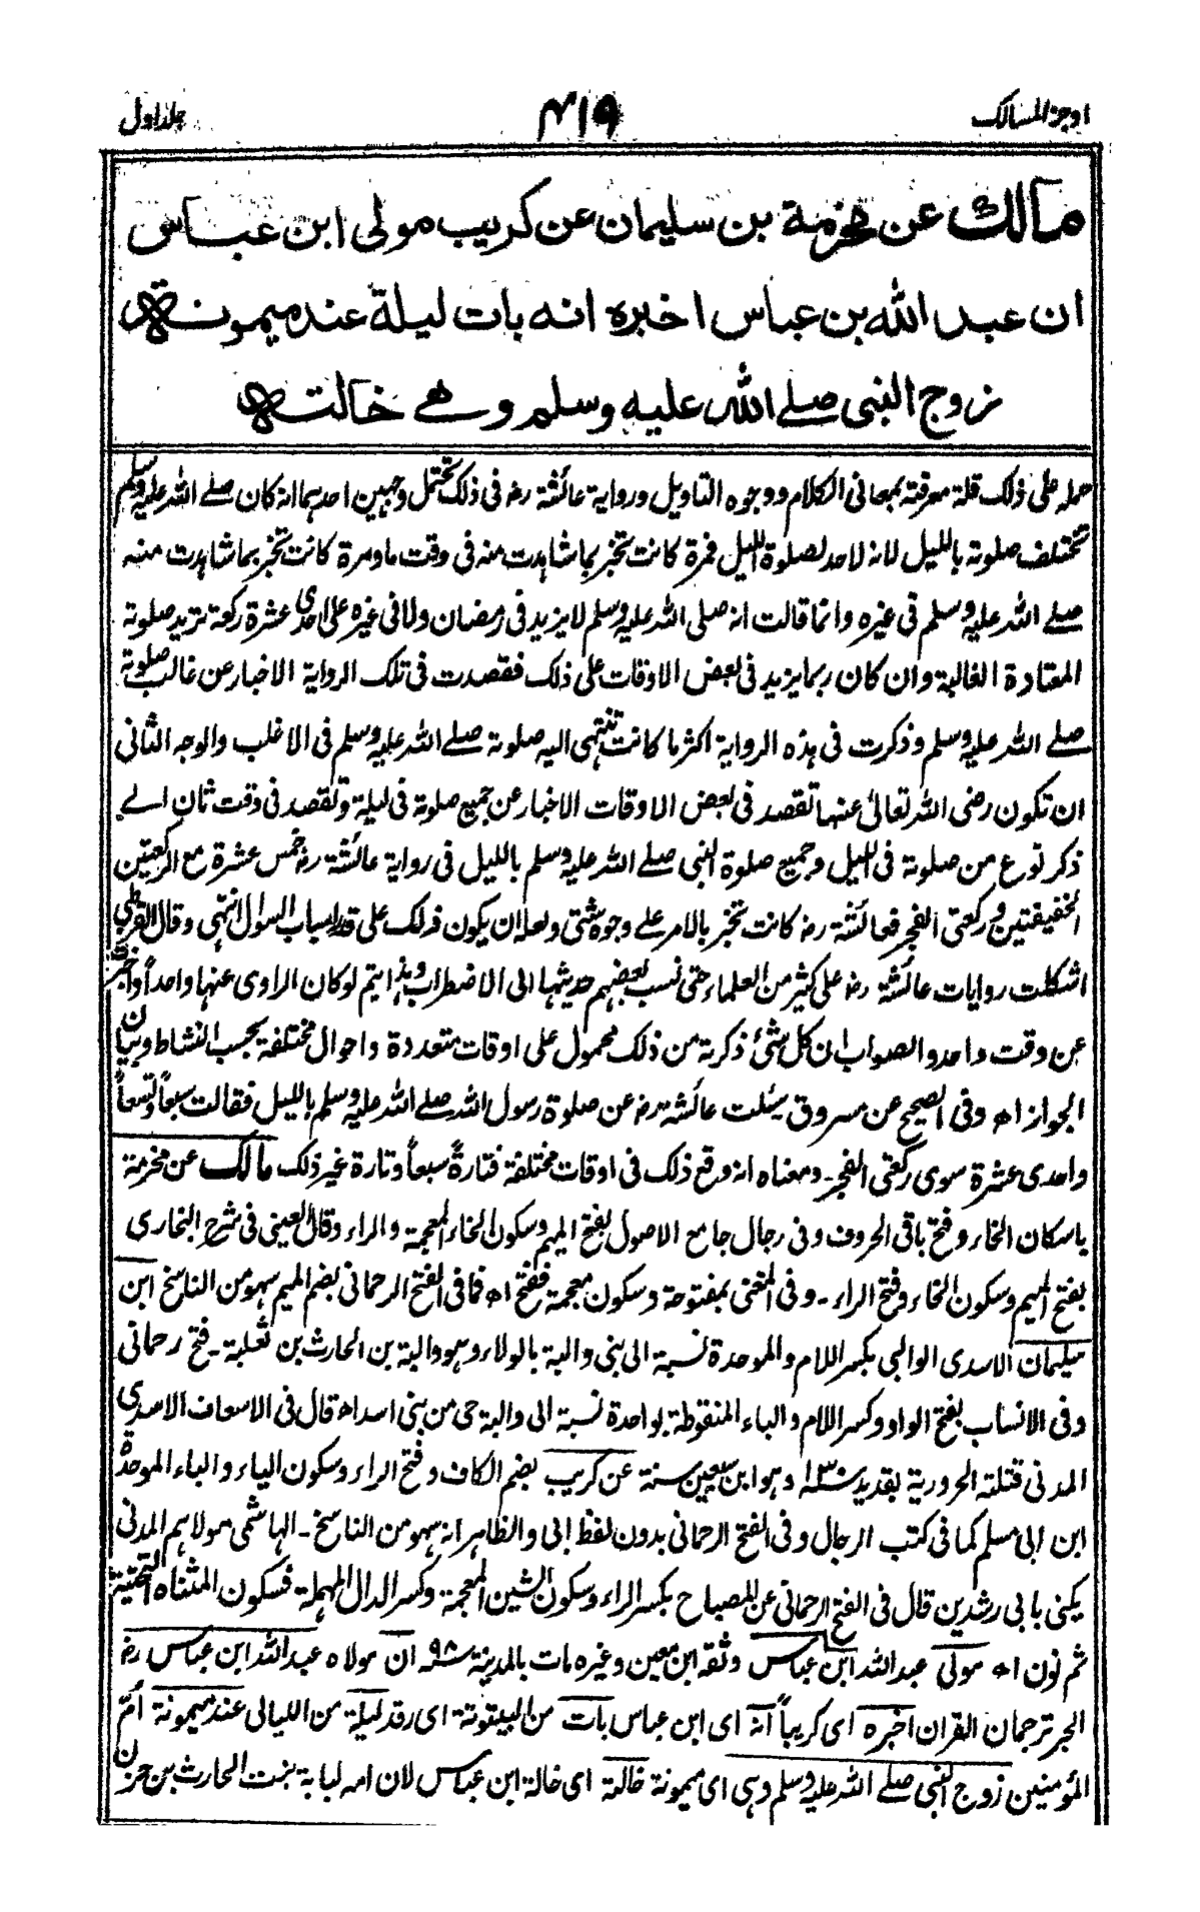 اوجز المسالك ۴۱۹ جلد اول
مالك عن مخرمة بن سليمان عن كريب مولى ابن عباس
ان عبد الله بن عباس اخبره انه بات ليلة عند ميمونة
زوج النبى صلے الله عليه وسلم وهے خالته
حمله على ذلك قلة معرفته بمعانى الكلام ووجوه التاويل ورواية عائشة رض فى ذلك تحتمل وجهين احدهما انه كان صلے الله عليه وسلم
تختلف صلوته بالليل لانه لاحد لصلوة الليل فمرة كانت تخبر بما شاهدت منه فى وقت ما ومرة كانت تخبر بما شاهدت منه
صلے الله عليه وسلم فى غيره وانما قالت انه صلى الله عليه وسلم لا يزيد فى رمضان ولا فى غيره على احدى عشرة ركعة تريد صلوته
المعتادة الغالبة وان كان ربما يزيد فى بعض الاوقات على ذلك فقصدت فى تلك الرواية الاخبار عن غالب صلوته
صلے الله عليه وسلم وذكرت فى هذه الرواية اكثر ما كانت تنتهى اليه صلوته صلے الله عليه وسلم فى الاغلب والوجه الثانى
ان تكون رضى الله تعالىٰ عنها تقصد فى بعض الاوقات الاخبار عن جميع صلوته فى ليلة وتقصد فى وقت ثان الے
ذكر نوع من صلوته فى الليل وجميع صلوة النبى صلے الله عليه وسلم بالليل فى رواية عائشة رض خمس عشرة مع الركعتين
الخفيفتين وركعتى الفجر فعائشة رض كانت تخبر بالامر علے وجوه شتى ولعله ان يكون ذلك على قدر اسباب السوال انتهى وقال القرطبى
اشكلت روايات عائشة رض على كثير من العلماء حتى نسب بعضهم حديثها الى الاضطراب وهذا يتم لو كان الراوى عنها واحداً واخبرت
عن وقت واحد والصواب ان كل شئ ذكرته من ذلك محمول على اوقات متعددة واحوال مختلفة بحسب النشاط وبيان
الجواز اھ وفى الصحيح عن مسروق سئلت عائشة رض عن صلوة رسول الله صلے الله عليه وسلم بالليل فقالت سبعاً وتسعاً
واحدى عشرة سوى ركعتى الفجر۔ ومعناه انه وقع ذلك فى اوقات مختلفة فتارةً سبعاً وتارة غير ذلك مالك عن مخرمة
باسكان الخاء وفتح باقى الحروف وفى رجال جامع الاصول بفتح الميم وسكون الخاء المعجمة والراء وقال العينى فى شرح البخارى
بفتح الميم وسكون الخاء وفتح الراء۔ وفى المغنى بمفتوحة وسكون معجمة ففتح اھ فما فى الفتح الرحمانى بضم الميم سهو من الناسخ ابن
سليمان الاسدى الوالبى بكسر اللام والموحدة نسبة الى بنى والبة بالولاء وهو والبة بن الحارث بن ثعلبة۔ فتح رحمانى
وفى الانساب بفتح الواو وكسر اللام والباء المنقوطة بواحدة نسبة الى والبة حى من بنى اسد اھ قال فى الاسعاف الاسدى
المدنى قتلته الحرورية بقديد سنة ۱۳۰ وهو ابن سبعين سنة عن كريب بضم الكاف وفتح الراء وسكون الياء والباء الموحدة
ابن ابى مسلم كما فى كتب الرجال وفى الفتح الرحمانى بدون لفظ ابى والظاهر انه سهو من الناسخ۔ الهاشمى مولاهم المدنى
يكنى بابى رشدين قال فى الفتح الرحمانى عن المصباح بكسر الراء وسكون الشين المعجمة وكسر الدال المهملة فسكون المثناة التحتية
ثم نون اھ مولى عبدالله ابن عباس وثقه ابن معين وغيره مات بالمدينة سنة ۹۸ ان مولاه عبدالله ابن عباس رض
الحبر ترجمان القران اخبره اى كريباً انه اى ابن عباس بات من البيتوتة اى رقد ليلة من الليالى عند ميمونة اُمّ
المؤمنين زوج النبى صلے الله عليه وسلم وهى اى ميمونة خالته اى خالة ابن عباس لان امه لبابة بنت الحارث بن حزن